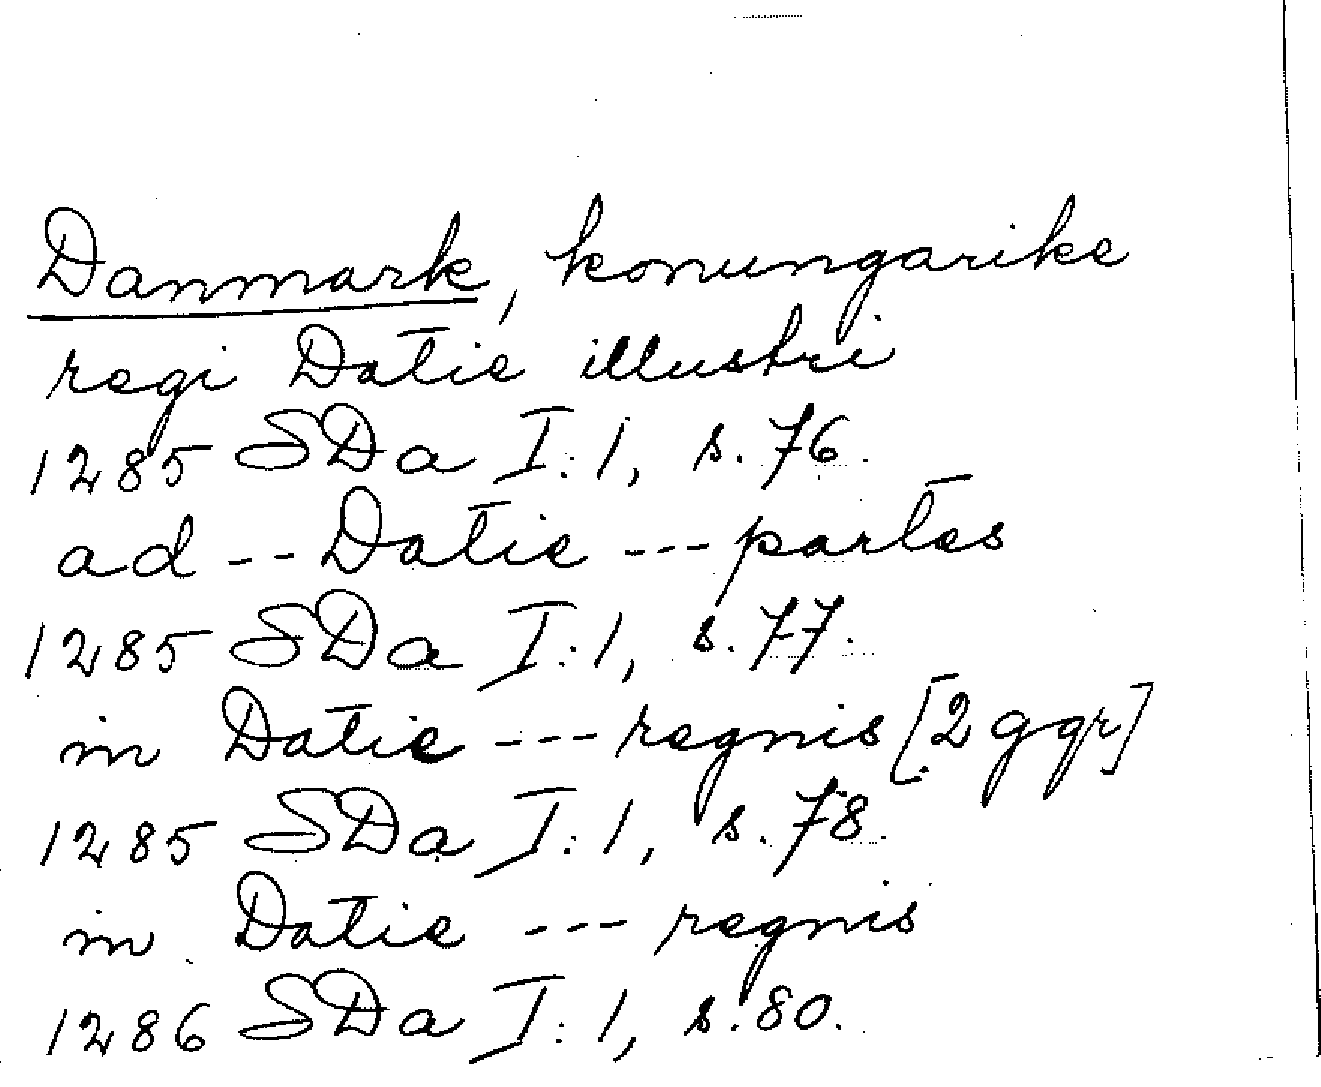 Danmark, konungarike
regi Datie illustri
1285 SDa I:1, s. 76.
ad -- Datie --- partes
1285 SDa I:1, s. 77.
in Datie --- regnis [2 ggr]
1285 SDa I:1, s. 78.
in Datie --- regnis
1286 SDa I:1, s. 80.